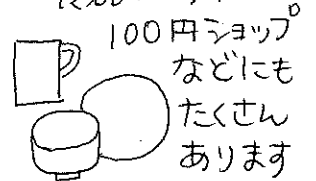 100円ショップ
などにも
たくさん
あります